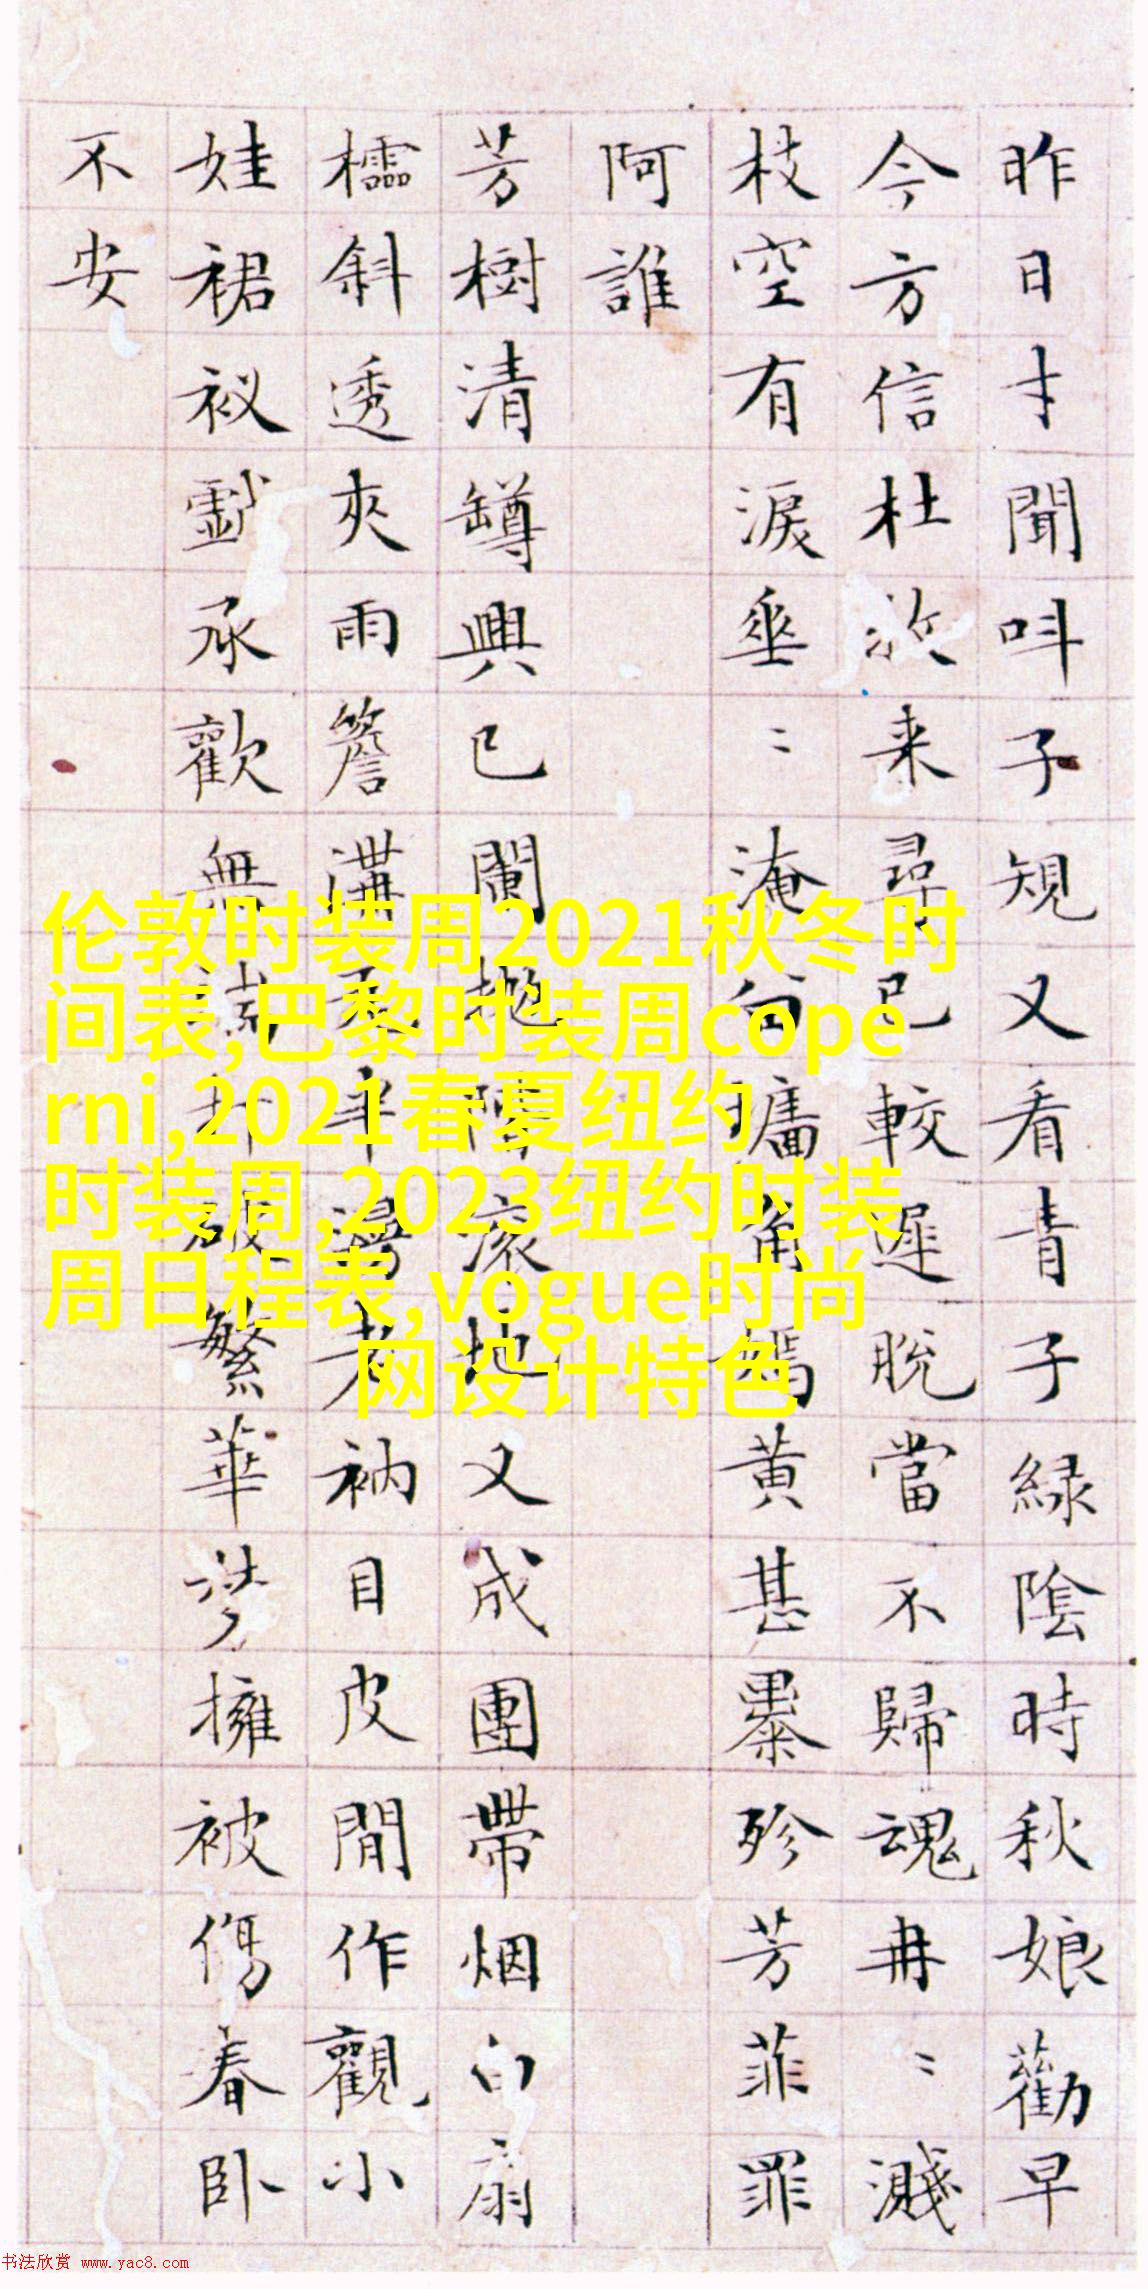 昨日才聞呌子規又看青子緑陰時秋娘勸早
今方信杜牧来尋已較遲脫當不歸魂冉〻濺
枝空有淚垂〻淹旬攎角嫣黄甚黍殄芳菲罪
阿誰
芳樹清罇興已闌拋隂滾地又成團帶烟白扇
櫺斜透夾雨簷溝天半湯老衲目皮閒作觀小
娃裙衩戱承歡無端打破繁華夢擁被傷春卧
不安
伦敦时装周2021秋冬时
间表,巴黎时装周cope
rni,2021春夏纽约
时装周,2023纽约时装
周日程表,vogue时尚
网设计特色
书法欣赏 www.yac8.com